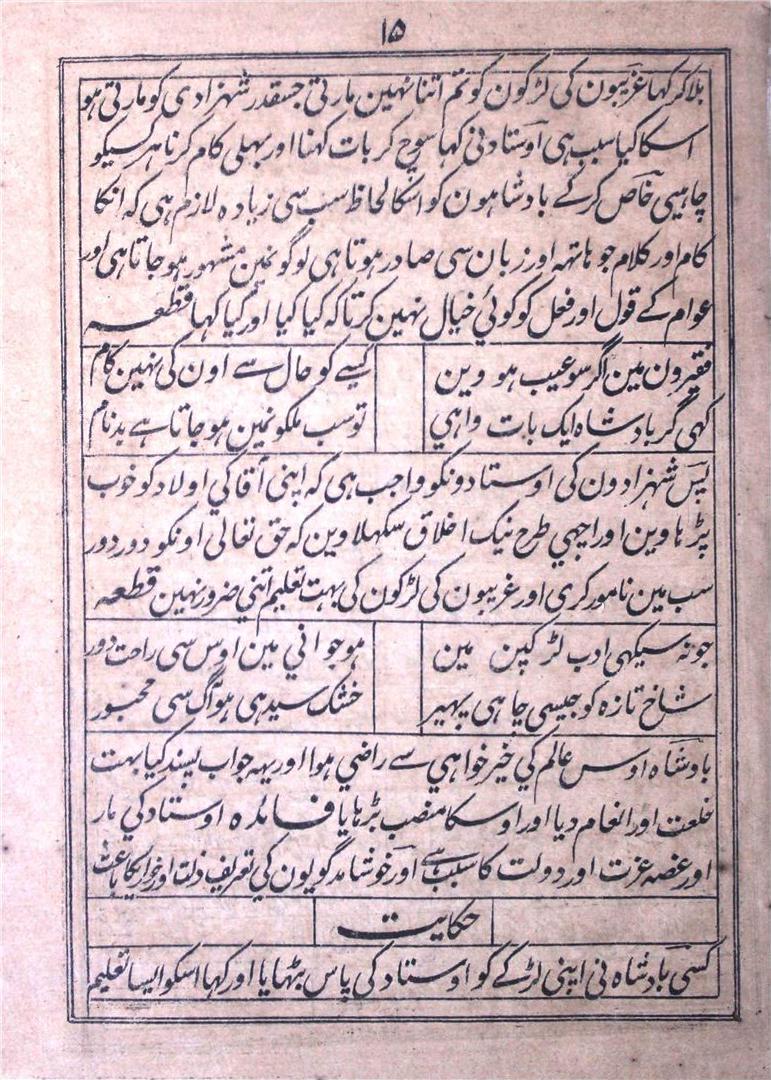 ۱۵
بلا کر کہا غریبون کی لڑکون کو تم اتنا نہین مارتی جسقدر شہزادی کو مارتی ہو
اسکا کیا سبب ہی اوستاد نی کہا سوچ کر بات کہنا اور بہلی کام کرنا ہر کسیکو
چاہیی خاص کر کے بادشاہون کو اسکا لحاظ سب سی زیادہ لازم ہی کہ انکا
کام اور کلام جو ہاتہہ اور زبان سی صادر ہوتا ہی لوگونمین مشہور ہو جاتا ہی اور
عوام کے قول اور فعل کو کوئی خیال نہین کرتا کہ کیا کیا اور کیا کہا قطعہ
فقیرون مین اگر سو عیب ہووین کسے کو حال سے اون کی نہین کام
کہی گر بادشاہ ایک بات واہی تو سب ملکونمین ہو جاتا ہے بدنام
پس شہزادون کی اوستادونکو واجب ہی کہ اپنی آقا کی اولاد کو خوب
پڑہاوین اور اچہی طرح نیک اخلاق سکہلاوین کہ حق تعالی اونکو دور دور
سب مین نامور کری اور غریبون کی لڑکون کی بہت تعلیم اتنی ضرور نہین قطعہ
جو نہ سیکہی ادب لڑکپن مین ہو جوانی مین اوس سی راحت دور
شاخ تازہ کو جیسی چاہی پہیر خشک سیدہی ہو آگ سی مجبور
بادشاہ اوس عالم کی خیر خواہی سے راضی ہوا اور یہہ جواب پسند کیا بہت
خلعت اور انعام دیا اور اوسکا منصب بڑہایا فائدہ اوستاد کی مار
اور غصہ عزت اور دولت کا سبب ہے اور خوشامد گویون کی تعریف ذلت اور خواریکا باعث
حکایت
کسی بادشاہ نی اپنی لڑکے کو اوستاد کی پاس بٹہایا اور کہا اسکو ایسا تعلیم